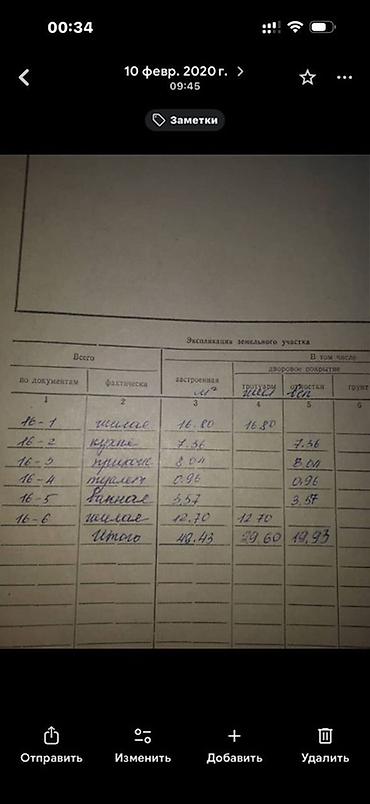 00:34
10 февр. 2020 г.
09:45
Заметки
Экспликация земельного участка
Всего
В том числе
дворовое покрытие
по документам фактически застроенная тротуары отмостки грунт
м² жил всп
1 2 3 4 5 6
16-1 жилая 16.80 16.80
16-2 кухня 7.36 7.36
16-3 прихож 8.04 8.04
16-4 туалет 0.96 0.96
16-5 ванная 3,57 3,57
16-6 жилая 12.70 12.70
Итого 49.43 29.60 19,93
Отправить
Изменить
Добавить
Удалить